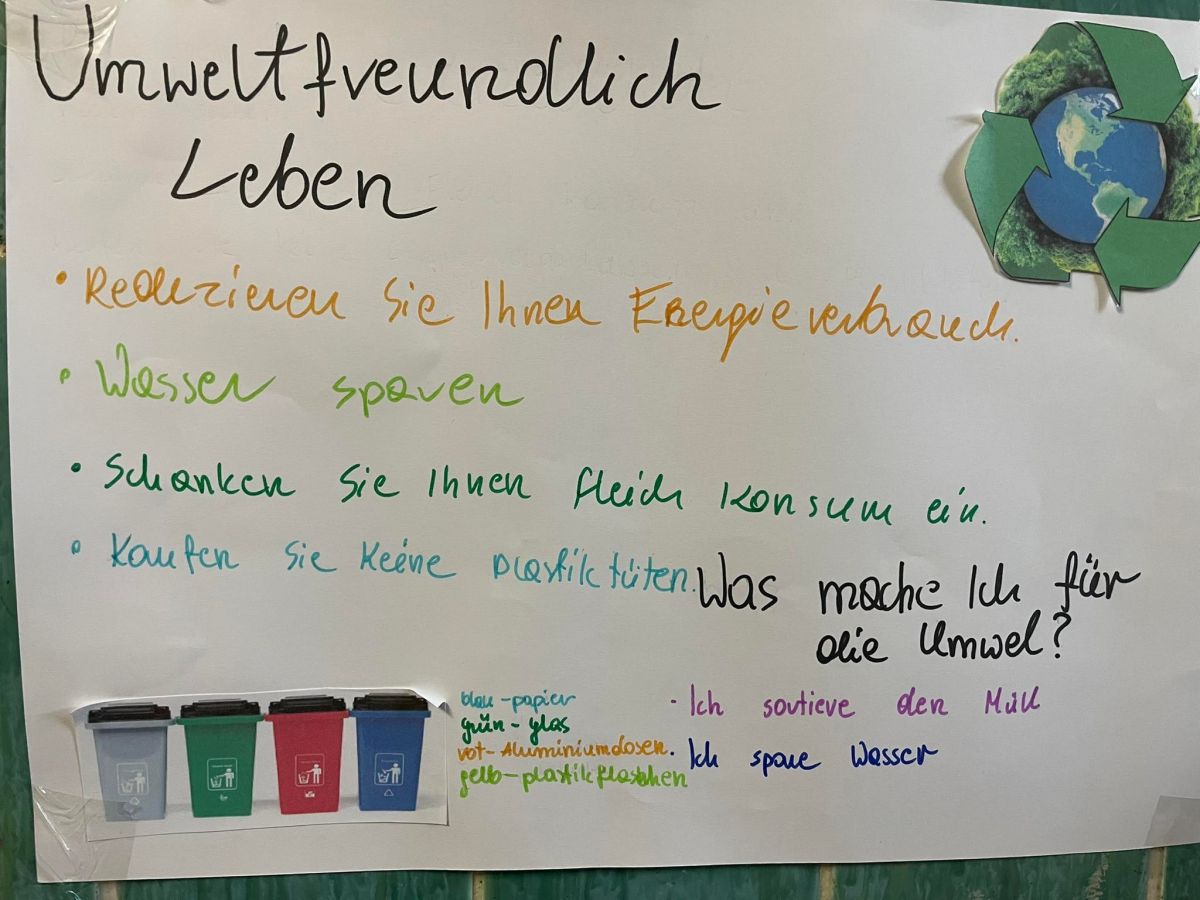 Umweltfreundlich
Leben
• Reduzieren Sie Ihnen Energieverbrauch.
• Wasser sparen
• Schanken Sie Ihnen fleich Konsum ein.
• Kaufen Sie Keine plastiktüten.
Was mache Ich für
die Umwel?
blau - papier
grün - glas
rot - Aluminiumdosen.
gelb - plastikflaschen
• Ich sortiere den Müll
• Ich spare Wasser